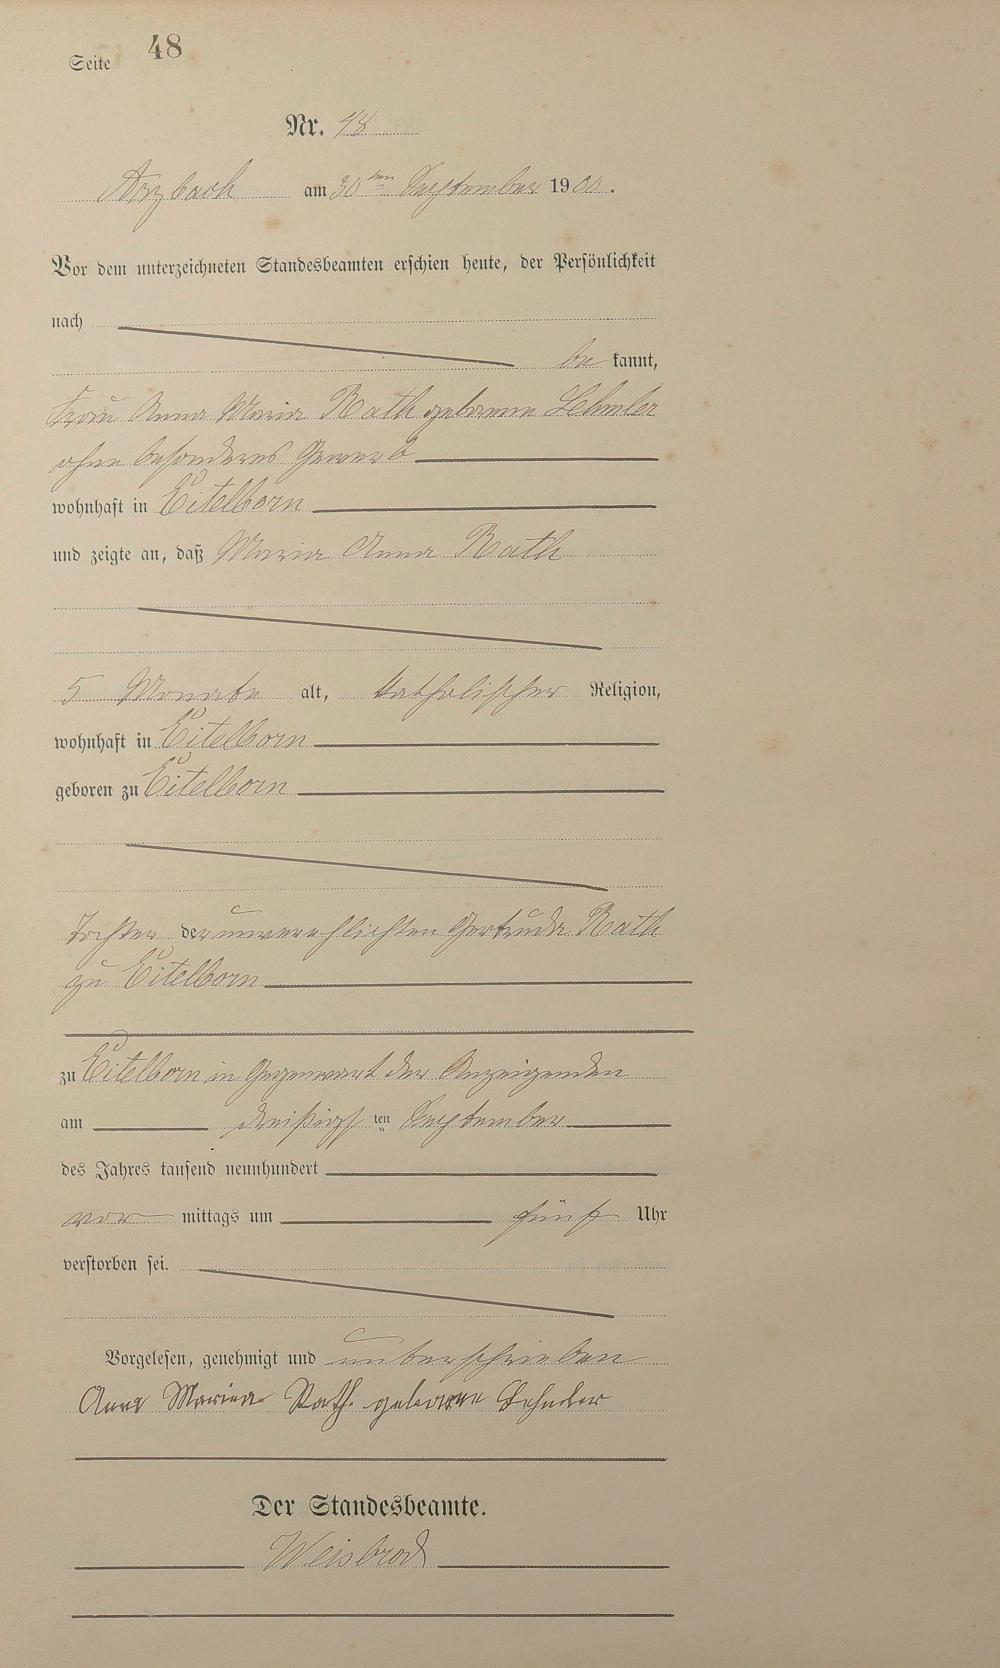 Seite 48
Nr. 48
Arzbach am 30ten September 1900.
Vor dem unterzeichneten Standesbeamten erschien heute, der Persönlichkeit
nach
be kannt,
Frau Anna Maria Rath geborene Lehmler
ohne besonderes Gewerb
wohnhaft in Eitelborn
und zeigte an, daß Maria Anna Rath
5 Monate alt, katholischer Religion,
wohnhaft in Eitelborn
geboren zu Eitelborn
Tochter der unverehlichten Gertrude Rath
zu Eitelborn
zu Eitelborn in Gegenwart der Anzeigenden
am dreißigsten September
des Jahres tausend neunhundert
vor mittags um fünf Uhr
verstorben sei.
Vorgelesen, genehmigt und unterschrieben
Anna Maria Rath geborene
Der Standesbeamte.
Weisbrod